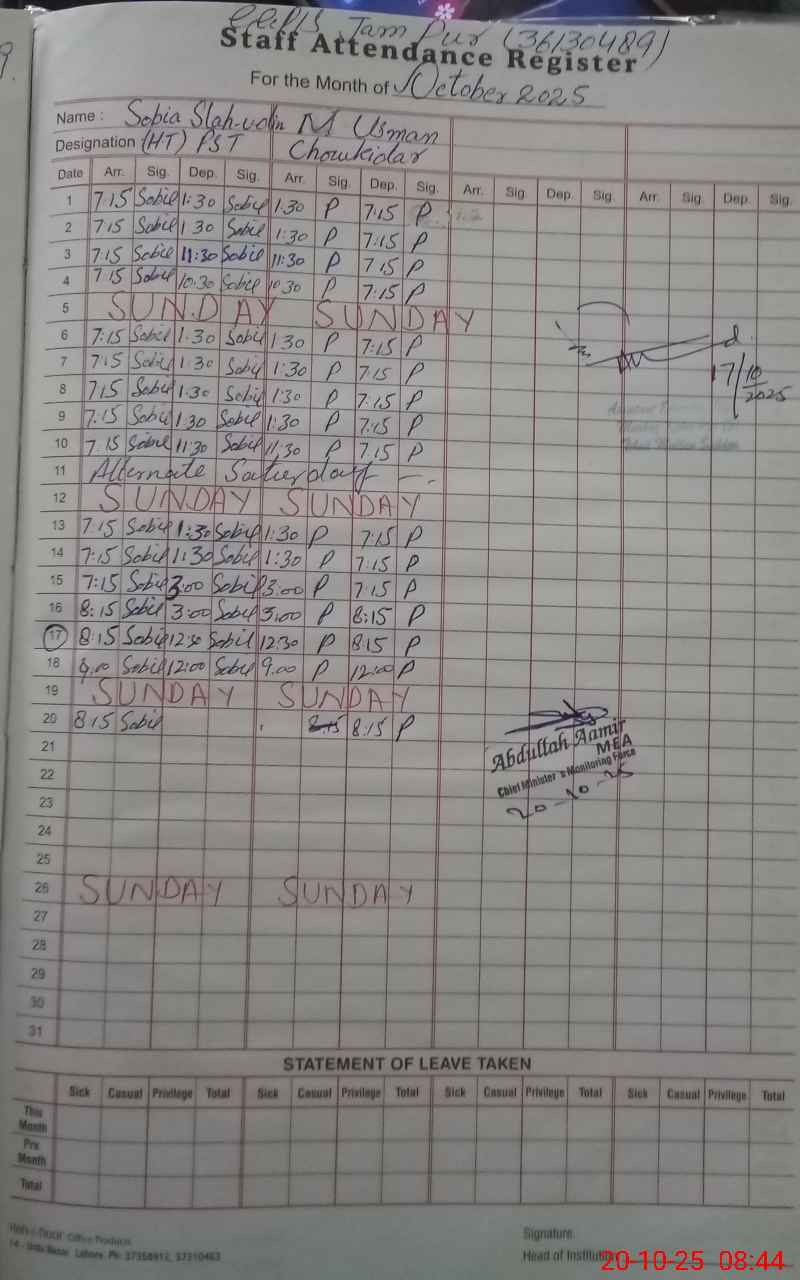 Jam Pur (36130489)
Staff Attendance Register
For the Month of October 2025
Name : Sobia Slah-udin M Usman
Designation (HT) PST Chowkidar
Date Arr. Sig. Dep. Sig. Arr. Sig. Dep. Sig. Arr. Sig. Dep. Sig. Arr. Sig. Dep. Sig.
1 7:15 Sobil 1:30 Sobil 1:30 P 7:15 P
2 7:15 Sobil 1:30 Sobil 1:30 P 7:15 P
3 7:15 Sobil 11:30 Sobil 11:30 P 7:15 P
4 7:15 Sobil 10:30 Sobil 10:30 P 7:15 P
5 SUNDAY SUNDAY
6 7:15 Sobil 1:30 Sobil 1:30 P 7:15 P
7 7:15 Sobil 1:30 Sobil 1:30 P 7:15 P
8 7:15 Sobil 1:30 Sobil 1:30 P 7:15 P
17/10/2025
9 7:15 Sobil 1:30 Sobil 1:30 P 7:15 P
10 7:15 Sobil 11:30 Sobil 11:30 P 7:15 P
11 Alternate Saturday
12 SUNDAY SUNDAY
13 7:15 Sobil 1:30 Sobil 1:30 P 7:15 P
14 7:15 Sobil 1:30 Sobil 1:30 P 7:15 P
15 7:15 Sobil 3:00 Sobil 3:00 P 7:15 P
16 8:15 Sobil 3:00 Sobil 3:00 P 8:15 P
17 8:15 Sobil 12:30 Sobil 12:30 P 8:15 P
18 9.00 Sobil 12:00 Sobil 9.00 P 12:00 P
19 SUNDAY SUNDAY
20 8:15 Sobil 8:15 8:15 P
Abdullah Aamir
MEA
Chief Minister's Monitoring Force
20-10-25
21
22
23
24
25
26 SUNDAY SUNDAY
27
28
29
30
31
STATEMENT OF LEAVE TAKEN
Sick Casual Privilege Total Sick Casual Privilege Total Sick Casual Privilege Total Sick Casual Privilege Total
This Month
Pre Month
Total
Office Products
14 - Urdu Bazar Lahore. Ph: 37358912, 37310463
Signature
Head of Institution
20-10-25 08:44